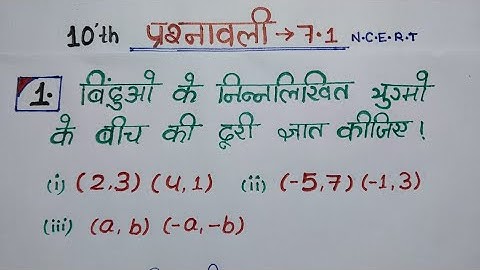 10'th प्रश्नावली → 7.1 N.C.E.R.T
1. बिंदुओ के निम्नलिखित युग्मो
के बीच की दूरी ज्ञात कीजिए !
(i) (2,3) (4,1) (ii) (-5,7) (-1,3)
(iii) (a, b) (-a,-b)